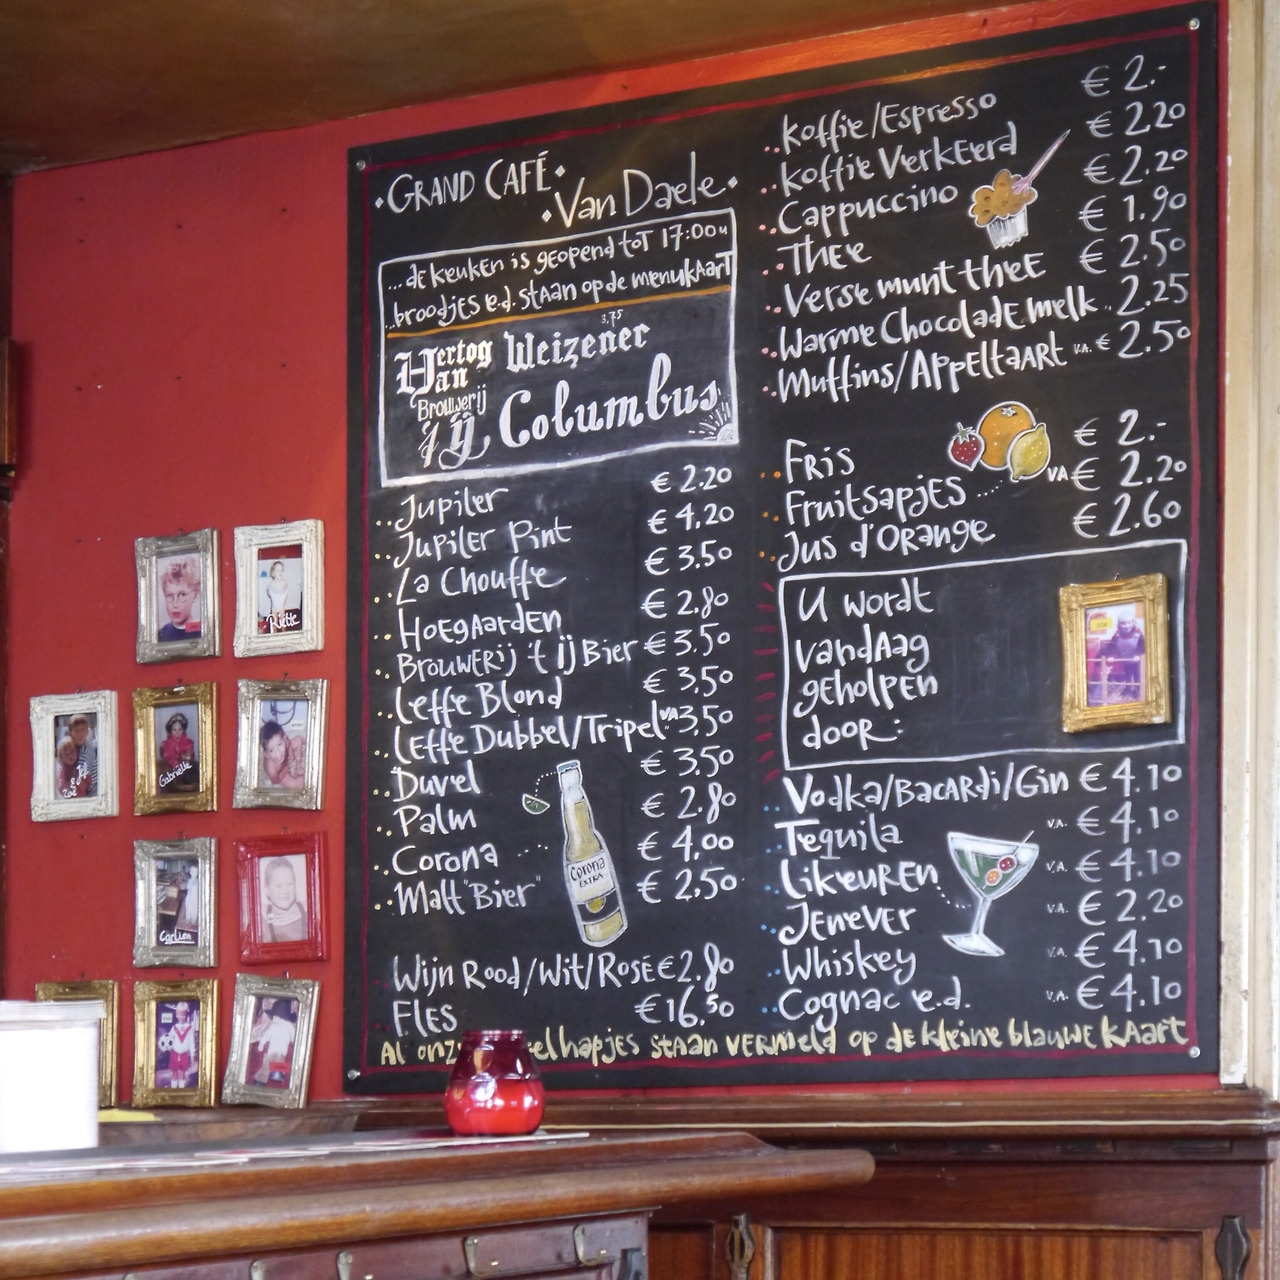 GRAND CAFÉ
Van Daele
...de keuken is geopend tot 17:00u
..broodjes e.d. staan op de menukaart
Hertog Jan Weizener 3,75
Brouwerij 't ij Columbus
..Jupiler € 2.20
..Jupiler Pint € 4,20
..La Chouffe € 3,50
..Hoegaarden € 2,80
..Brouwerij 't ij Bier € 3,50
..Leffe Blond € 3,50
..Leffe Dubbel/Tripel v.a. 3,50
..Duvel € 3.50
..Palm € 2.80
..Corona ... € 4,00
..Malt "Bier" € 2,50
Corona
EXTRA
Wijn Rood/Wit/Rosé € 2.80
Fles € 16,50
..Koffie/Espresso € 2.-
..Koffie Verkeerd € 2.20
..Cappuccino € 2.20
..Thee € 1.90
..Verse munt thee € 2.50
..Warme Chocolademelk .. 2.25
..Muffins/Appeltaart v.a. € 2.50
..Fris € 2.-
..Fruitsapjes .... VA € 2.20
..Jus d'Orange € 2.60
U wordt
vandaag
geholpen
door:
..Vodka/Bacardi/Gin € 4.10
..Tequila v.a. € 4.10
..Likeuren v.a. € 4.10
..Jenever v.a. € 2.20
..Whiskey v.a. € 4.10
..Cognac e.d. v.a. € 4.10
Al staan vermeld op de kleine blauwe kaart
Riette
Gabrielle
Carlien